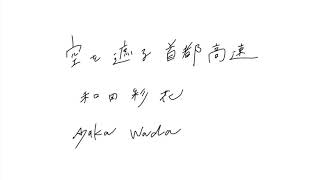 空を遮る首都高速
和田彩花
Ayaka Wada